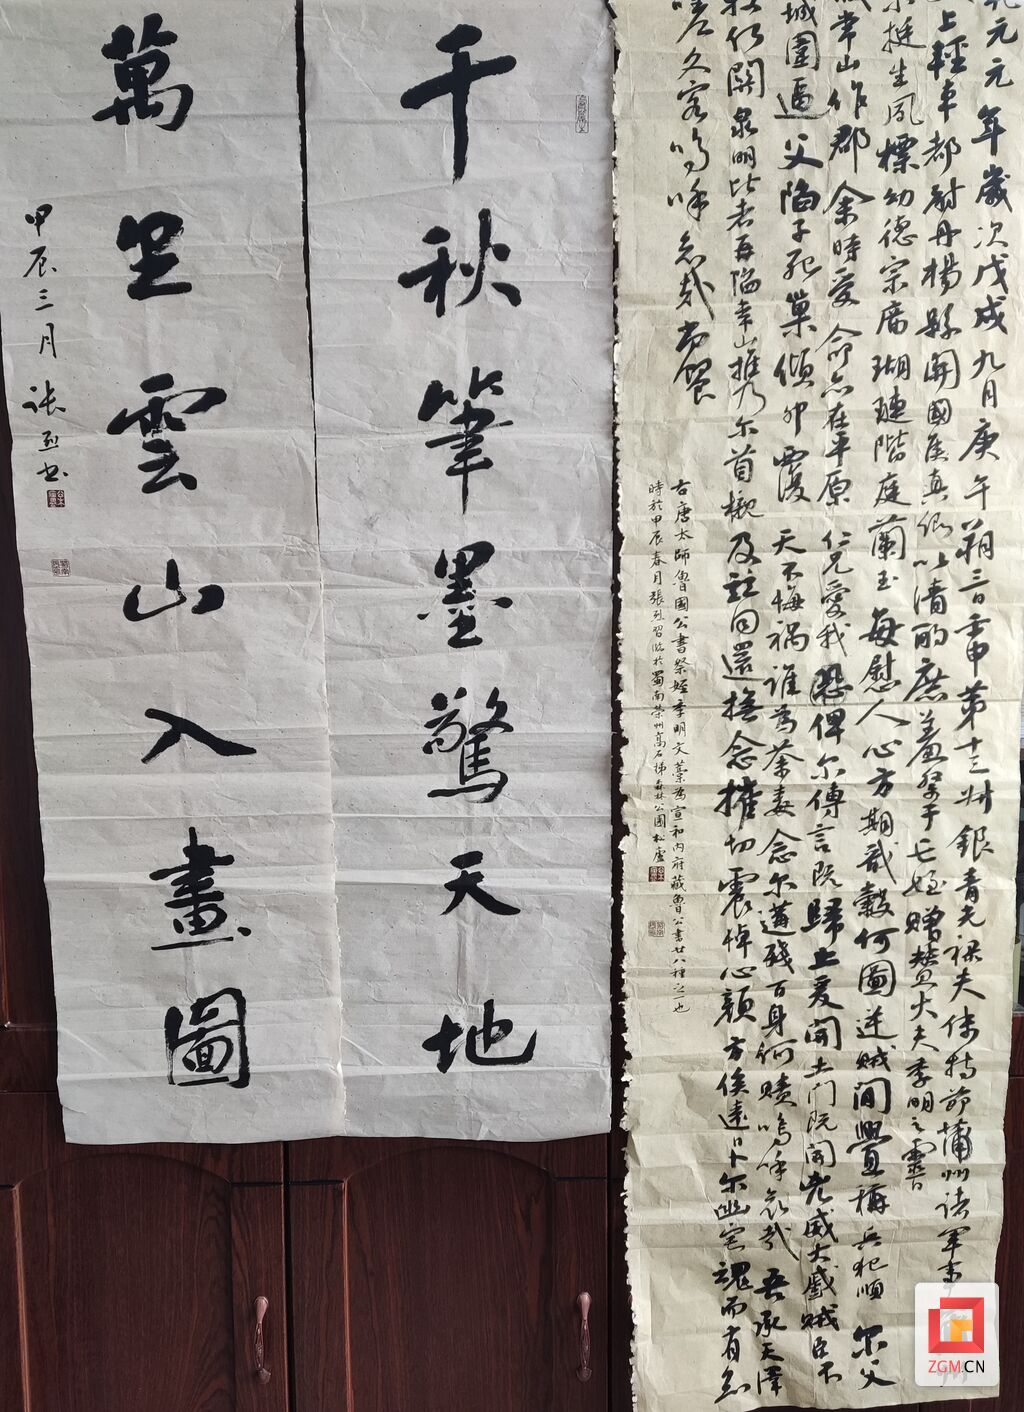 元元年歲次戊戌九月庚午朔三日壬申第十三叔銀青光祿夫使持節蒲州諸軍事
上輕車都尉丹楊縣開國侯真卿以清酌庶羞祭于亡姪贈贊大夫季明之靈曰
挺生夙標幼德宗廟瑚璉階庭蘭玉每慰人心方期戩穀何圖逆賊間釁稱兵犯順 爾父
常山作郡余時受命亦在平原仁兄愛我恐俾爾傳言既歸止爰開土門既開老威大蹙賊臣不
城圍逼父陷子死巢傾卵覆天不悔禍誰為荼毒念爾遘殘百身何贖嗚呼哀哉吾承天澤
關泉明比者再陷常山攜乃爾首櫬及茲同還撫念摧切震悼心顏方俟遠日卜爾幽宅魂而有知
嗟久客嗚呼哀哉尚饗
右唐太師魯國公書祭姪季明文藁為宣和內府藏魯公書廿八種之一也
時於甲辰春月張烈習臨於蜀南榮州高石梯森林公園松廬
千秋筆墨驚天地
萬里雲山入畫圖
甲辰三月 张烈书
ZGM.CN